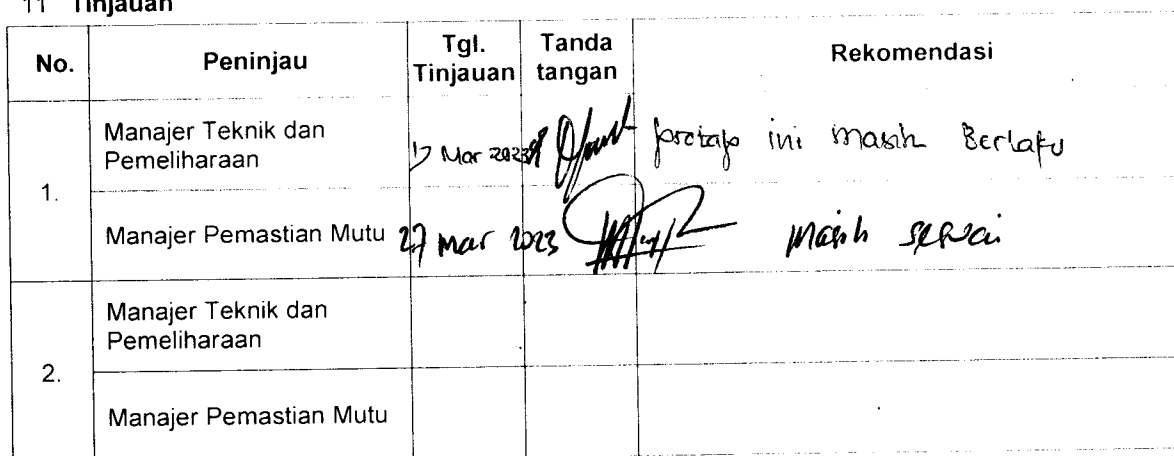 11 Tinjauan
No. Peninjau Tgl. Tinjauan Tanda tangan Rekomendasi
1. Manajer Teknik dan Pemeliharaan Mar 2023 protap ini masih Berlaku
Manajer Pemastian Mutu 27 Mar 2023 Masih sesuai
2. Manajer Teknik dan Pemeliharaan
Manajer Pemastian Mutu